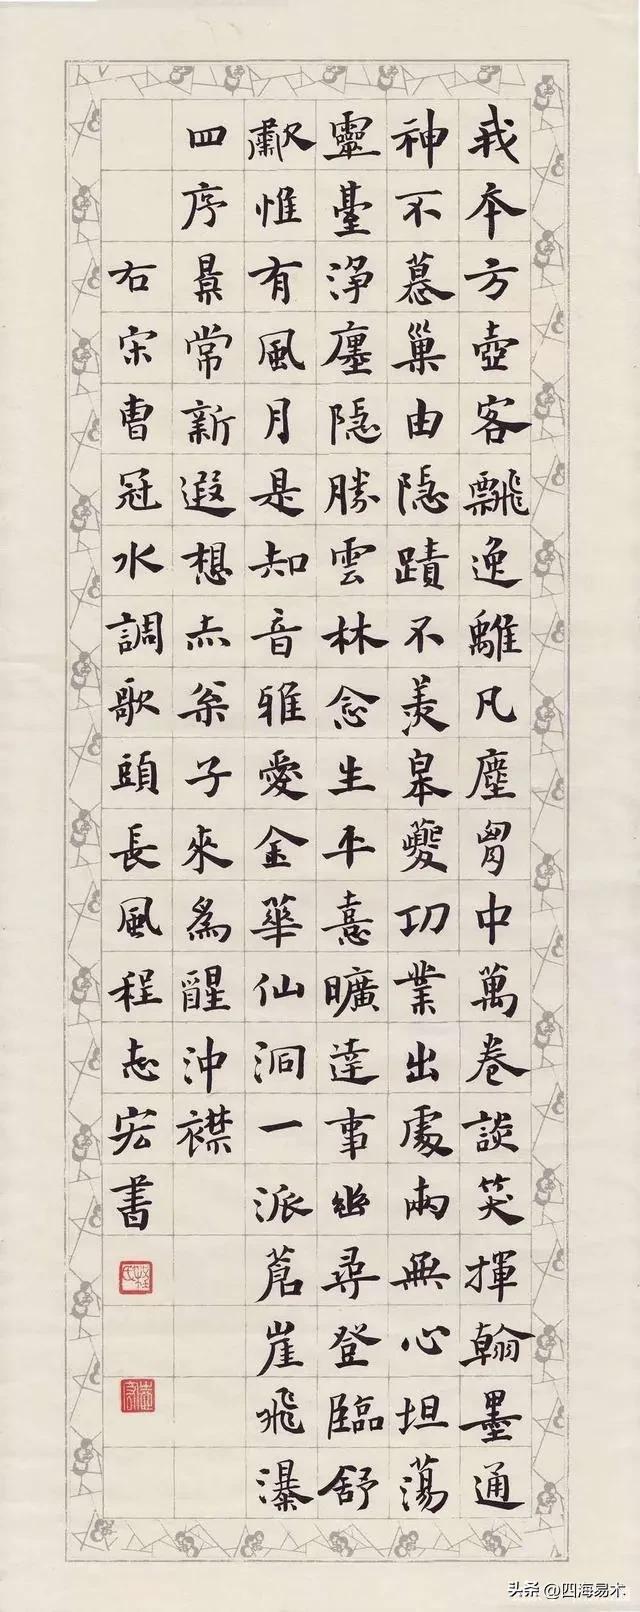 我本方壺客飄逸離凡塵胷中萬卷談笑揮翰墨通
神不慕巢由隱蹟不羨皋夔功業出處兩無心坦蕩
靈臺淨廛隱勝雲林念生平憙曠達事幽尋登臨舒
歗惟有風月是知音雅愛金華仙洞一派蒼崖飛瀑
四序景常新遐想赤枀子來爲醒沖襟
右宋曹冠水調歌頭長風程志宏書
头条 @四海易木